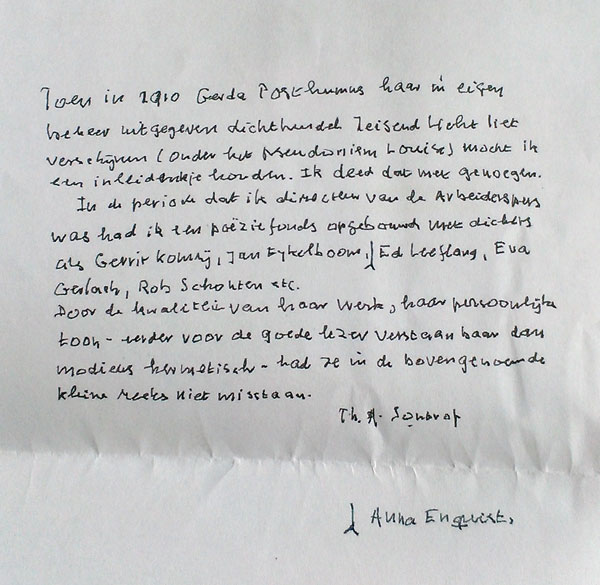 Toen in 2010 Gerda Posthumus haar in eigen
beheer uitgegeven dichtbundel Reisend Licht liet
verschijnen (onder het pseudoniem Louise) mocht ik
een inleidinkje houden. Ik deed dat met genoegen.
In de periode dat ik directeur van de Arbeiderspers
was had ik een poëziefonds opgebouwd met dichters
als Gerrit Komrij, Jan Eykelboom, ⌡ Ed Leeflang, Eva
Gerlach, Rob Schouten etc.
Door de kwaliteit van haar werk, haar persoonlijke
toon - eerder voor de goede lezer verstaanbaar dan
modieus hermetisch - had ze in de bovengenoemde
kleine reeks niet misstaan.
Th. A. Sontrop
⌡ Anna Enquist,